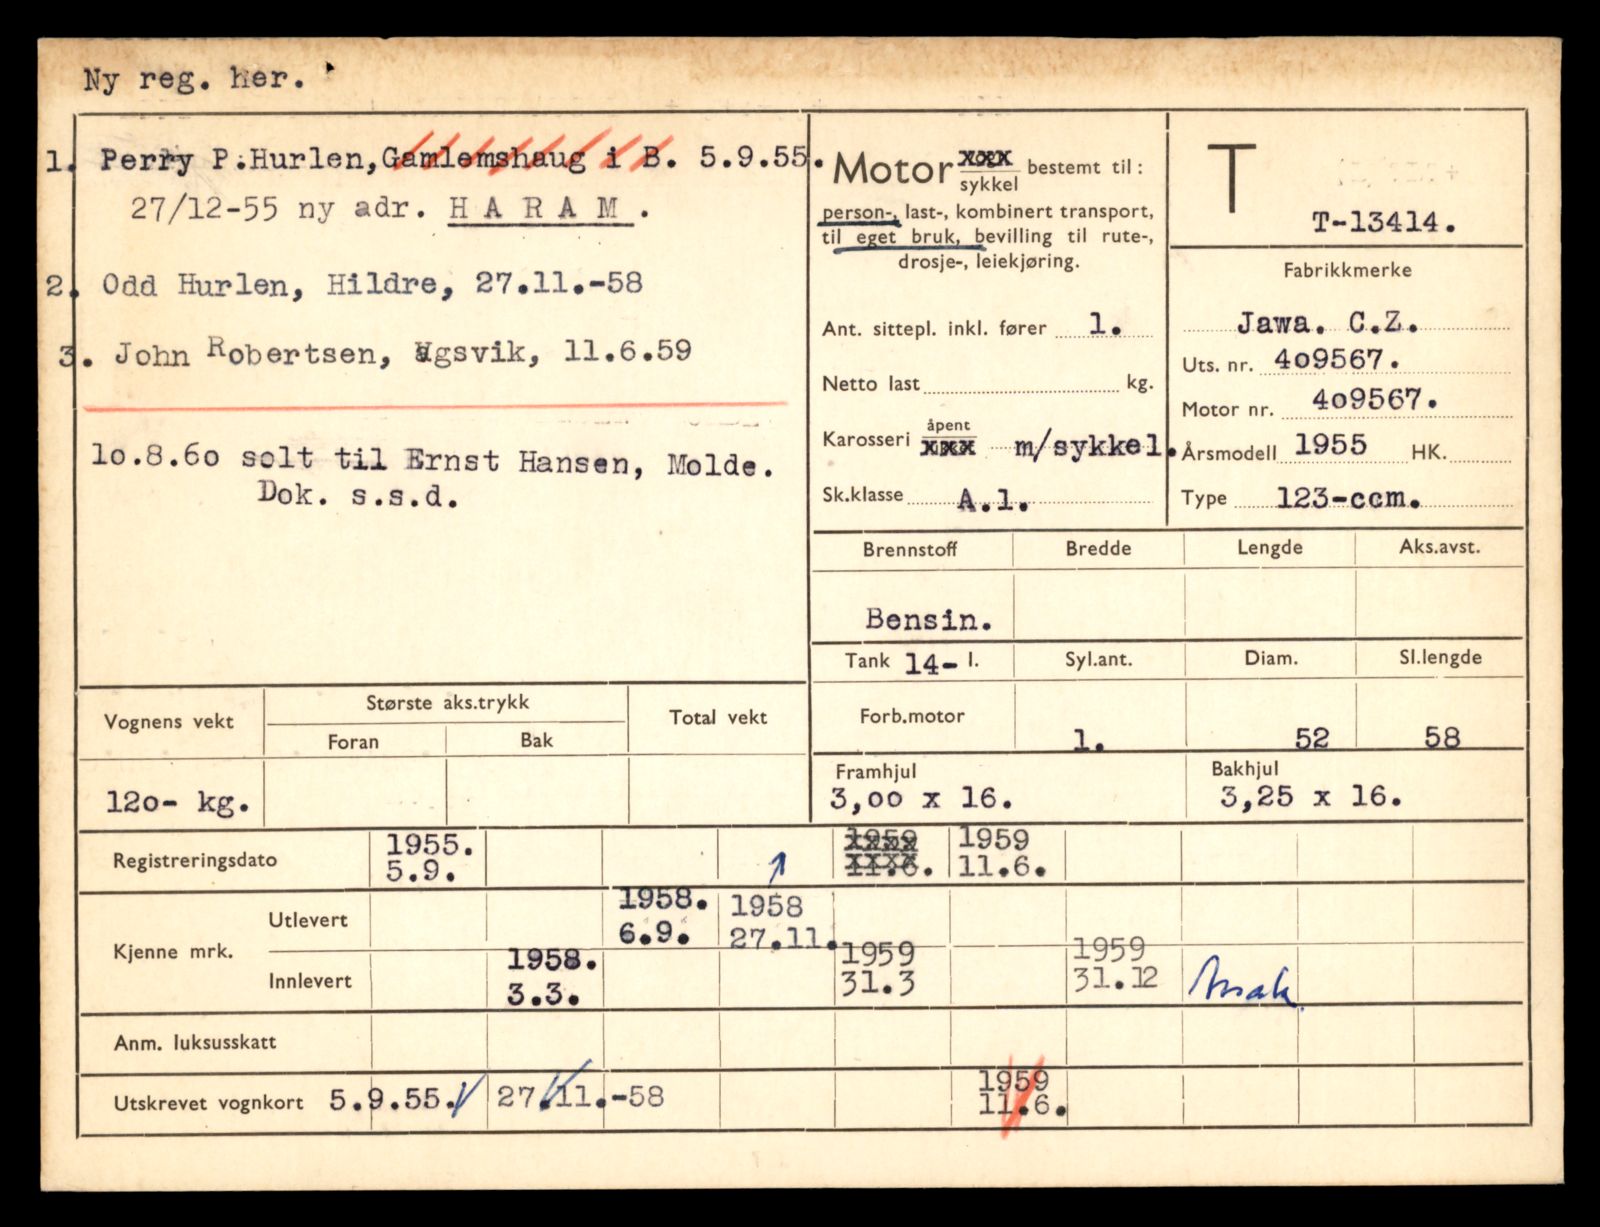 Ny reg. her.
1. Perry P. Hurlen, Gamlemshaug i B. 5.9.55.
27/12-55 ny adr. H A R A M .
2. Odd Hurlen, Hildre, 27.11.-58
3. John Robertsen, Vågsvik, 11.6.59
lo.8.6o solt til Ernst Hansen, Molde.
Dok. s.s.d.
Motor xxx
sykkel
bestemt til:
person-, last-, kombinert transport,
til eget bruk, bevilling til rute-,
drosje-, leiekjøring.
Ant. sittepl. inkl. fører 1.
Netto last kg.
Karosseri åpent
xxx m/sykkel.
Sk.klasse A.1.
T
T-13414.
Fabrikkmerke
Jawa. C.Z.
Uts. nr. 4o9567.
Motor nr. 4o9567.
Årsmodell 1955 HK.
Type 123-ccm.
Brennstoff Bredde Lengde Aks.avst.
Bensin.
Tank 14- l. Syl.ant. Diam. Sl.lengde
Forb.motor 1. 52 58
Framhjul Bakhjul
3,oo x 16. 3,25 x 16.
Vognens vekt Største aks.trykk Total vekt
Foran Bak
12o- kg.
Registreringsdato 1955. 1959 1959
5.9. 11.6. 11.6.
Kjenne mrk.
Utlevert 1958. 1958
6.9. 27.11.
Innlevert 1958. 1959 1959
3.3. 31.3 31.12
Anm. luksusskatt
Utskrevet vognkort 5.9.55. 27.11.-58 1959
11.6.